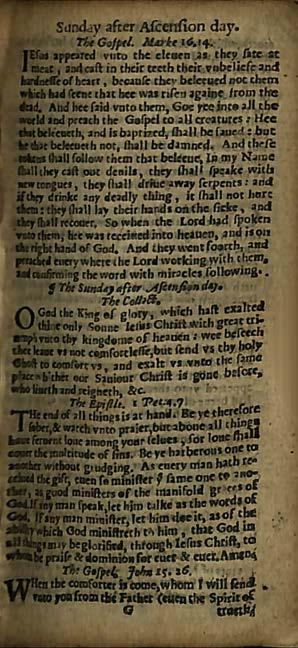 Sunday after Ascension day.
The Gospel. Marke 16.14.
IEsus appeared vnto the eleuen as they sate at
meat, and cast in their teeth their vnbeliefe and
hardnesse of heart, because they beleeued not them
which had seene that hee was risen againe from the
dead. And hee said vnto them, Goe yee into all the
world and preach the Gospel to all creatures: Hee
that beleeueth, and is baptized, shall be saued: but
he that beleeueth not, shall be damned. And these
tokens shall follow them that beleeue, In my Name
shall they cast out deuils, they shall speake with
new tongues, they shall driue away serpents: and
if they drinke any deadly thing, it shall not hurt
them: they shall lay their hands on the sicke, and
they shall recouer. So when the Lord had spoken
vnto them, hee was receiued into heauen, and is on
the right hand of God. And they went foorth, and
preached euery where the Lord working with them,
and confirming the word with miracles following.
¶ The Sunday after Ascension day.
The Collect.
O God the King of glory, which hast exalted
thine only Sonne Iesus Christ with great tri-
umph vnto thy kingdome of heauen: wee beseech
thee leaue vs not comfortlesse, but send vs thy holy
Ghost to comfort vs, and exalt vs vnto the same
place whither our Sauiour Christ is gone before,
who liueth and reigneth, &c.
The Epistle. 1 Pet. 4.7.
THe end of all things is at hand. Be ye therefore
sober, & watch vnto praier, but aboue all things
haue feruent loue among your selues, for loue shall
couer the multitude of sins. Be ye harberous one to
another without grudging. As euery man hath re-
ceiued the gift, euen so minister ye same one to ano-
ther, as good ministers of the manifold graces of
God. If any man speak, let him talke as the words of
God. If any man minister, let him doe it, as of the
ability which God ministreth to him, that God in
all things may be glorified, through Iesus Christ, to
whom be praise & dominion for euer & euer. Amen.
The Gospel. John 15. 26.
WHen the comforter is come, whom I will send
vnto you from the Father (euen the Spirit of
G truth,